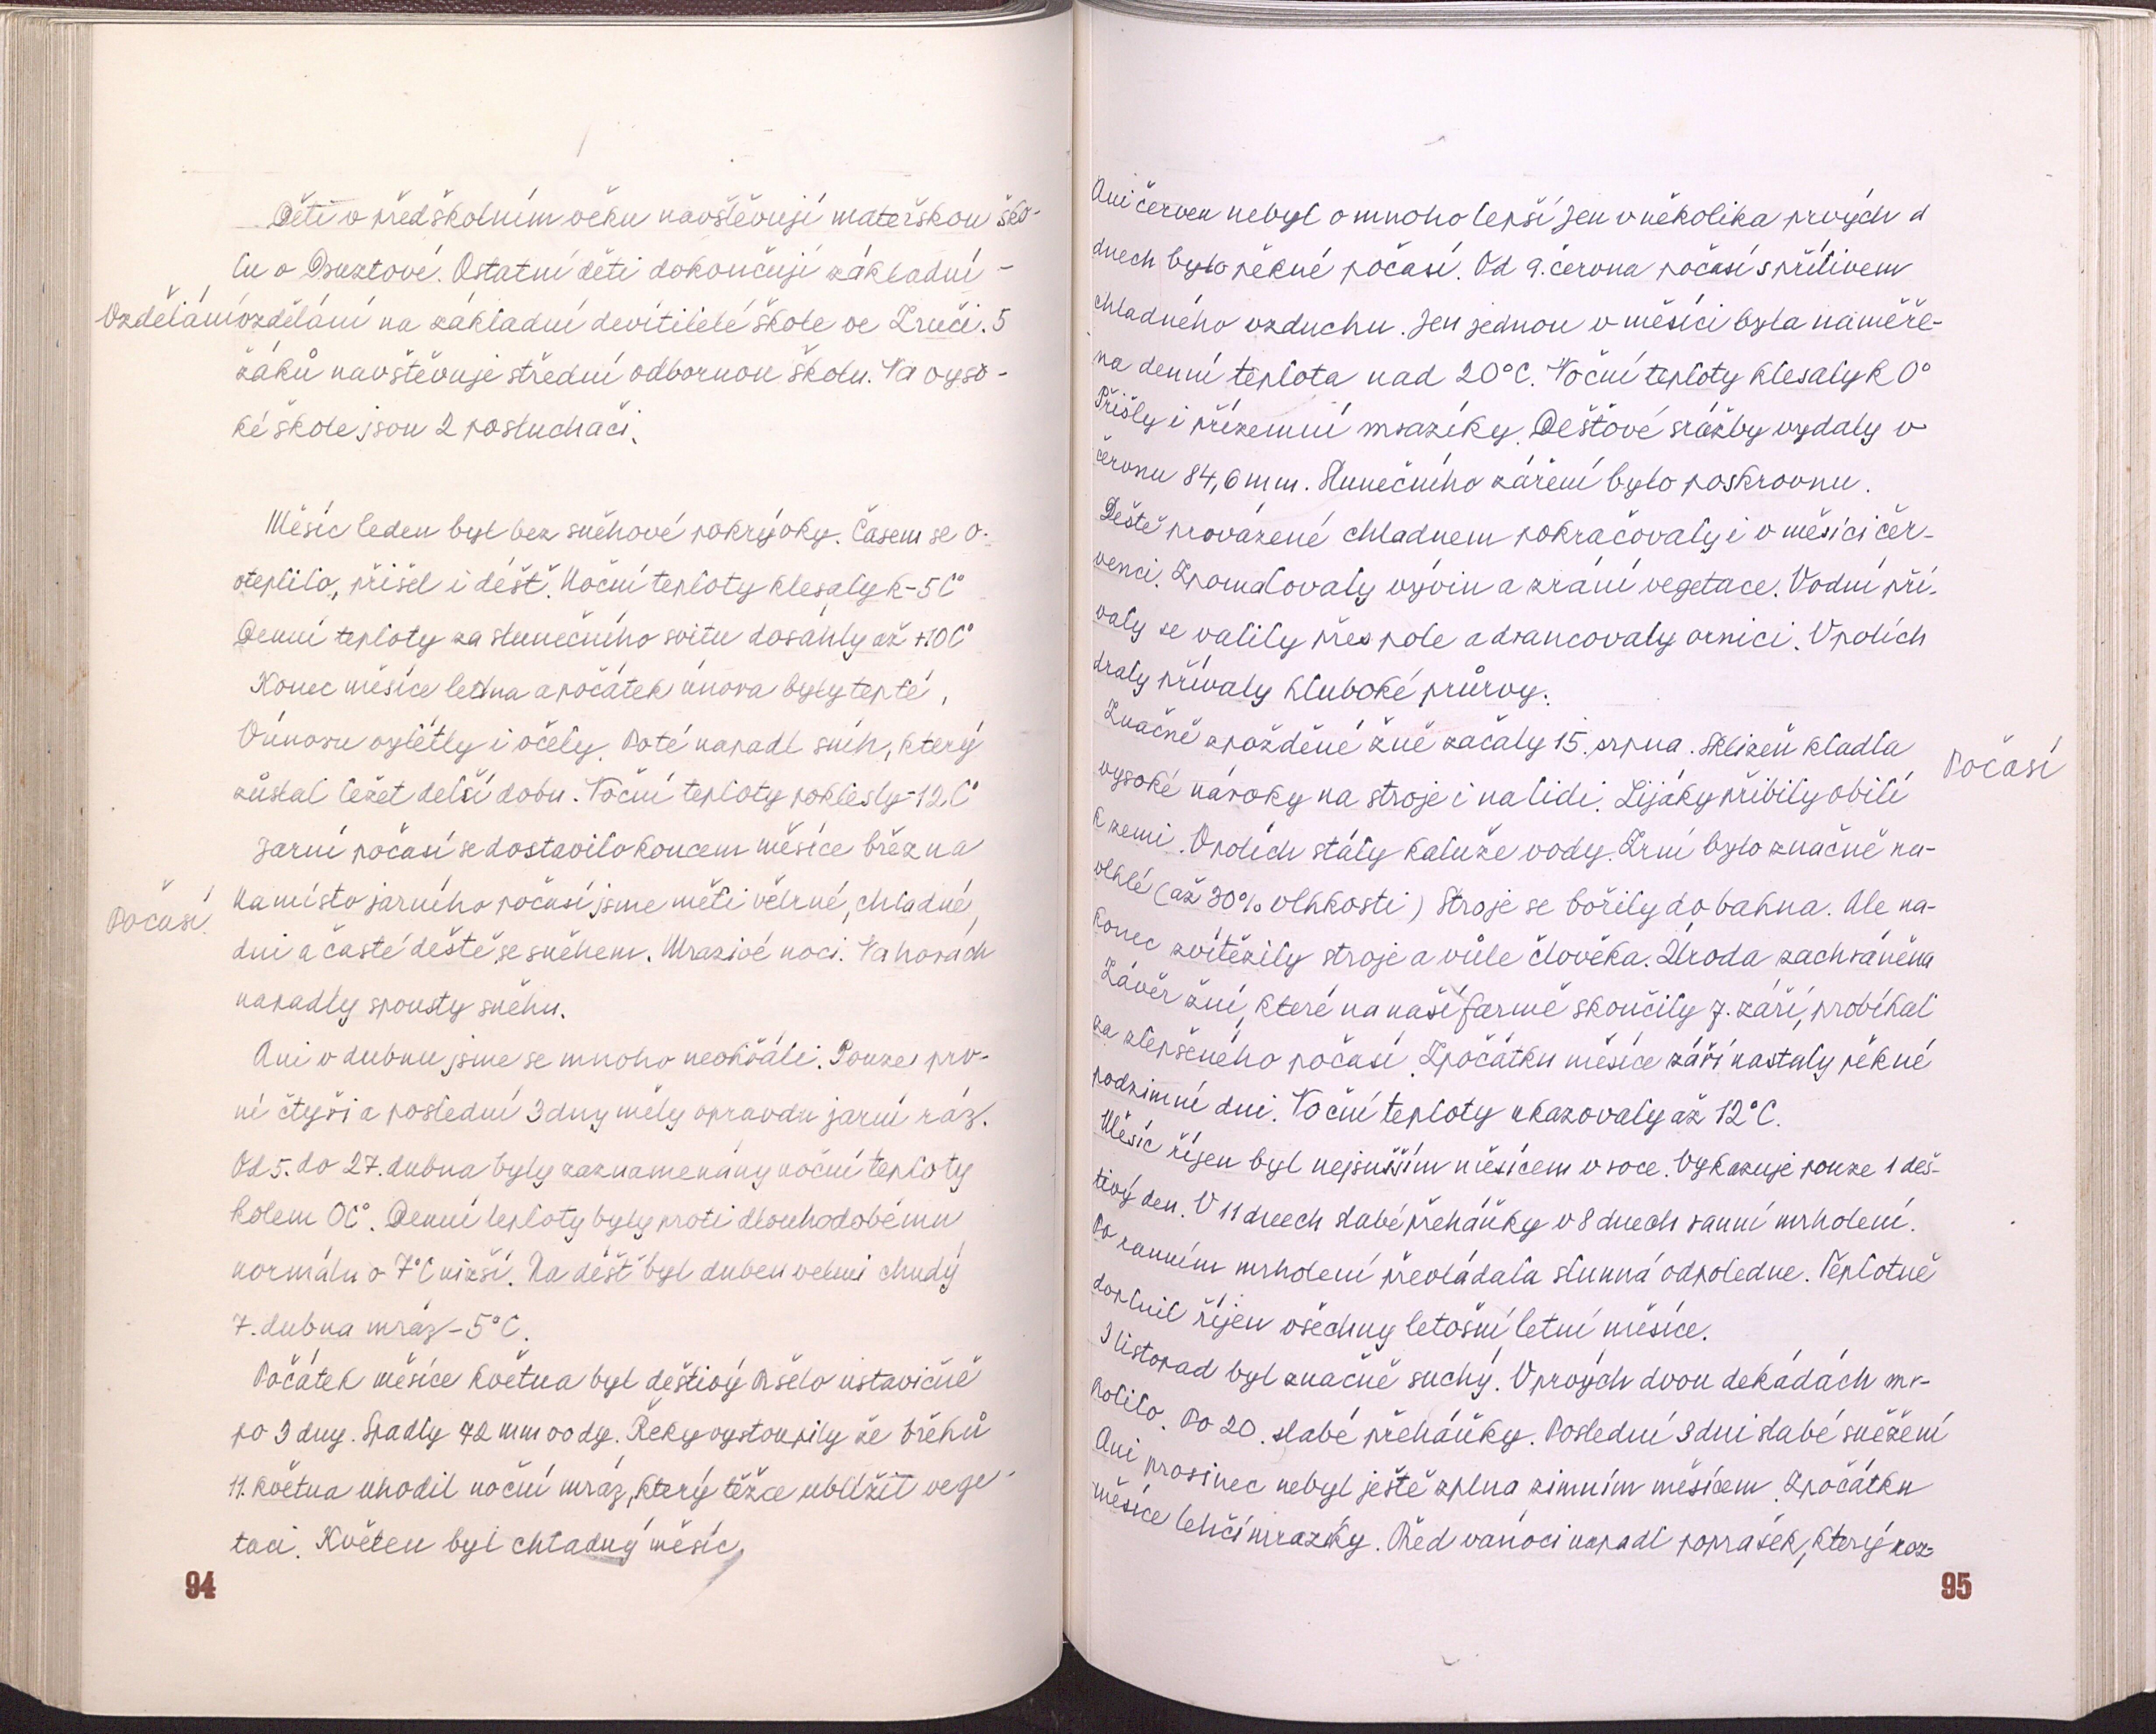 Děti v předškolním věku navštěvují mateřskou ško-
lu v Druztové. Ostatní děti dokončují základní -
Vzdělání
vzdělání na základní devítileté škole ve Zruči. 5
žáků navštěvuje střední odbornou školu. Na vyso-
ké škole jsou 2 posluchači.
Měsíc leden byl bez sněhové pokrývky. Časem se o-
oteplilo, přišel i déšť. Noční teploty klesaly k -5C°
Denní teploty za slunečního svitu dosáhly až +10C°
Konec měsíce ledna a počátek února byly teplé.
V únoru vylétly i včely. Poté napadl sníh, který
zůstal ležet delší dobu. Noční teploty poklesly -12C°
Jarní počasí se dostavilo koncem měsíce března
Počasí
Namísto jarního počasí jsme měli větrné, chladné,
dni a časté deště se sněhem. Mrazivé noci. Na horách
napadly spousty sněhu.
Ani v dubnu jsme se mnoho neohřáli. Pouze prv-
ní čtyři a poslední 3 dny měly opravdu jarní ráz.
Od 5. do 27. dubna byly zaznamenány noční teploty
kolem 0C°. Denní teploty byly proti dlouhodobému
normálu o 7°C nižší. Na déšť byl duben velmi chudý
7. dubna mráz -5°C.
Počátek měsíce května byl deštivý Pršelo ustavičně
po 3 dny. Spadly 42 mm vody. Řeky vystoupily ze břehů
11. května uhodil noční mráz, který těžce ublížil vege-
taci. Květen byl chladný měsíc,
94
Ani červen nebyl o mnoho lepší Jen v několika prvých d
dnech bylo pěkné počasí. Od 9. června počasí s přílivem
chladného vzduchu. Jen jednou v měsíci byla naměře-
na denní teplota nad 20°C. Noční teploty klesaly k 0°
Přišly i přízemní mrazíky. Dešťové srážby vydaly v
červnu 84,6 mm. Slunečního záření bylo poskrovnu.
Deště provázené chladnem pokračovaly i v měsíci čer-
venci. Zpomalovaly vývin a zrání vegetace. Vodní pří-
valy se valily přes pole a drancovaly ornici. V polích
draly přívaly hluboké průrvy.
Značně zpožděné žně začaly 15. srpna. Sklizeň kladla
Počasí
vysoké nároky na stroje i na lidi. Lijáky přibily obilí
k zemi. V polích stály kaluže vody. Zrní bylo značně na-
vlhlé (až 30% vlhkosti) Stroje se bořily do bahna. Ale na-
konec zvítězily stroje a vůle člověka. Úroda zachráněna
Závěr žní, které na naší farmě skončily 7. září, probíhal
za zlepšeného počasí. Zpočátku měsíce září nastaly pěkné
podzimní dni. Noční teploty ukazovaly až 12°C.
Měsíc říjen byl nejsušším měsícem v roce. Vykazuje pouze 1 deš-
tivý den. V 11 dnech slabé přeháňky v 8 dnech ranní mrholení.
Po ranním mrholení převládala slunná odpoledne. Teplotně
doplnil říjen všechny letošní letní měsíce.
I listopad byl značně suchý. V prvých dvou dekádách mr-
holilo. Po 20. slabé přeháňky. Poslední 3 dni slabé sněžení
Ani prosinec nebyl ještě zplna zimním měsícem. Zpočátku
měsíce lehčí mrazíky. Před vánoci napadl poprašek, který roz-
95